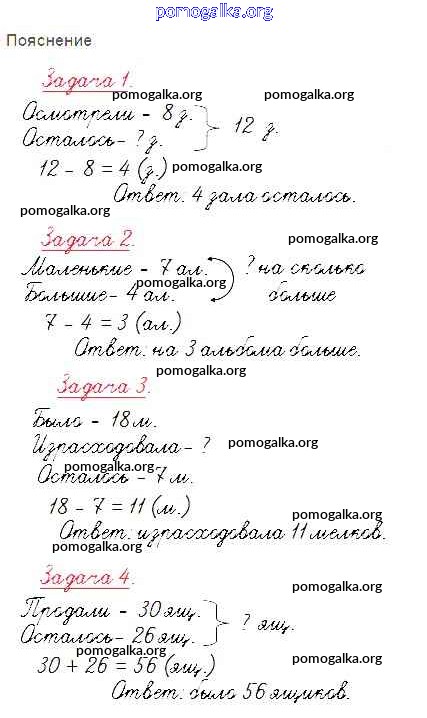 pomogalka.org
Пояснение
Задача 1.
pomogalka.org pomogalka.org
Осмотрели - 8 з.
Осталось - ? з. 12 з.
12 - 8 = 4 (з.) pomogalka.org
Ответ: 4 зала осталось.
pomogalka.org
Задача 2. pomogalka.org
Маленькие - 7 ал. ? на сколько
Большие - 4 ал. pomogalka.org больше
7 - 4 = 3 (ал.)
Ответ: на 3 альбома больше.
pomogalka.org
Задача 3.
Было - 18 м.
Израсходовала - ? pomogalka.org
pomogalka.org
Осталось - 7 м.
18 - 7 = 11 (м.) pomogalka.org
Ответ: израсходовала 11 мелков.
pomogalka.org
Задача 4. pomogalka.org
Продали - 30 ящ.
Осталось - 26 ящ. ? ящ.
30 + 26 = 56 (ящ.) pomogalka.org
pomogalka.org
Ответ: было 56 ящиков.